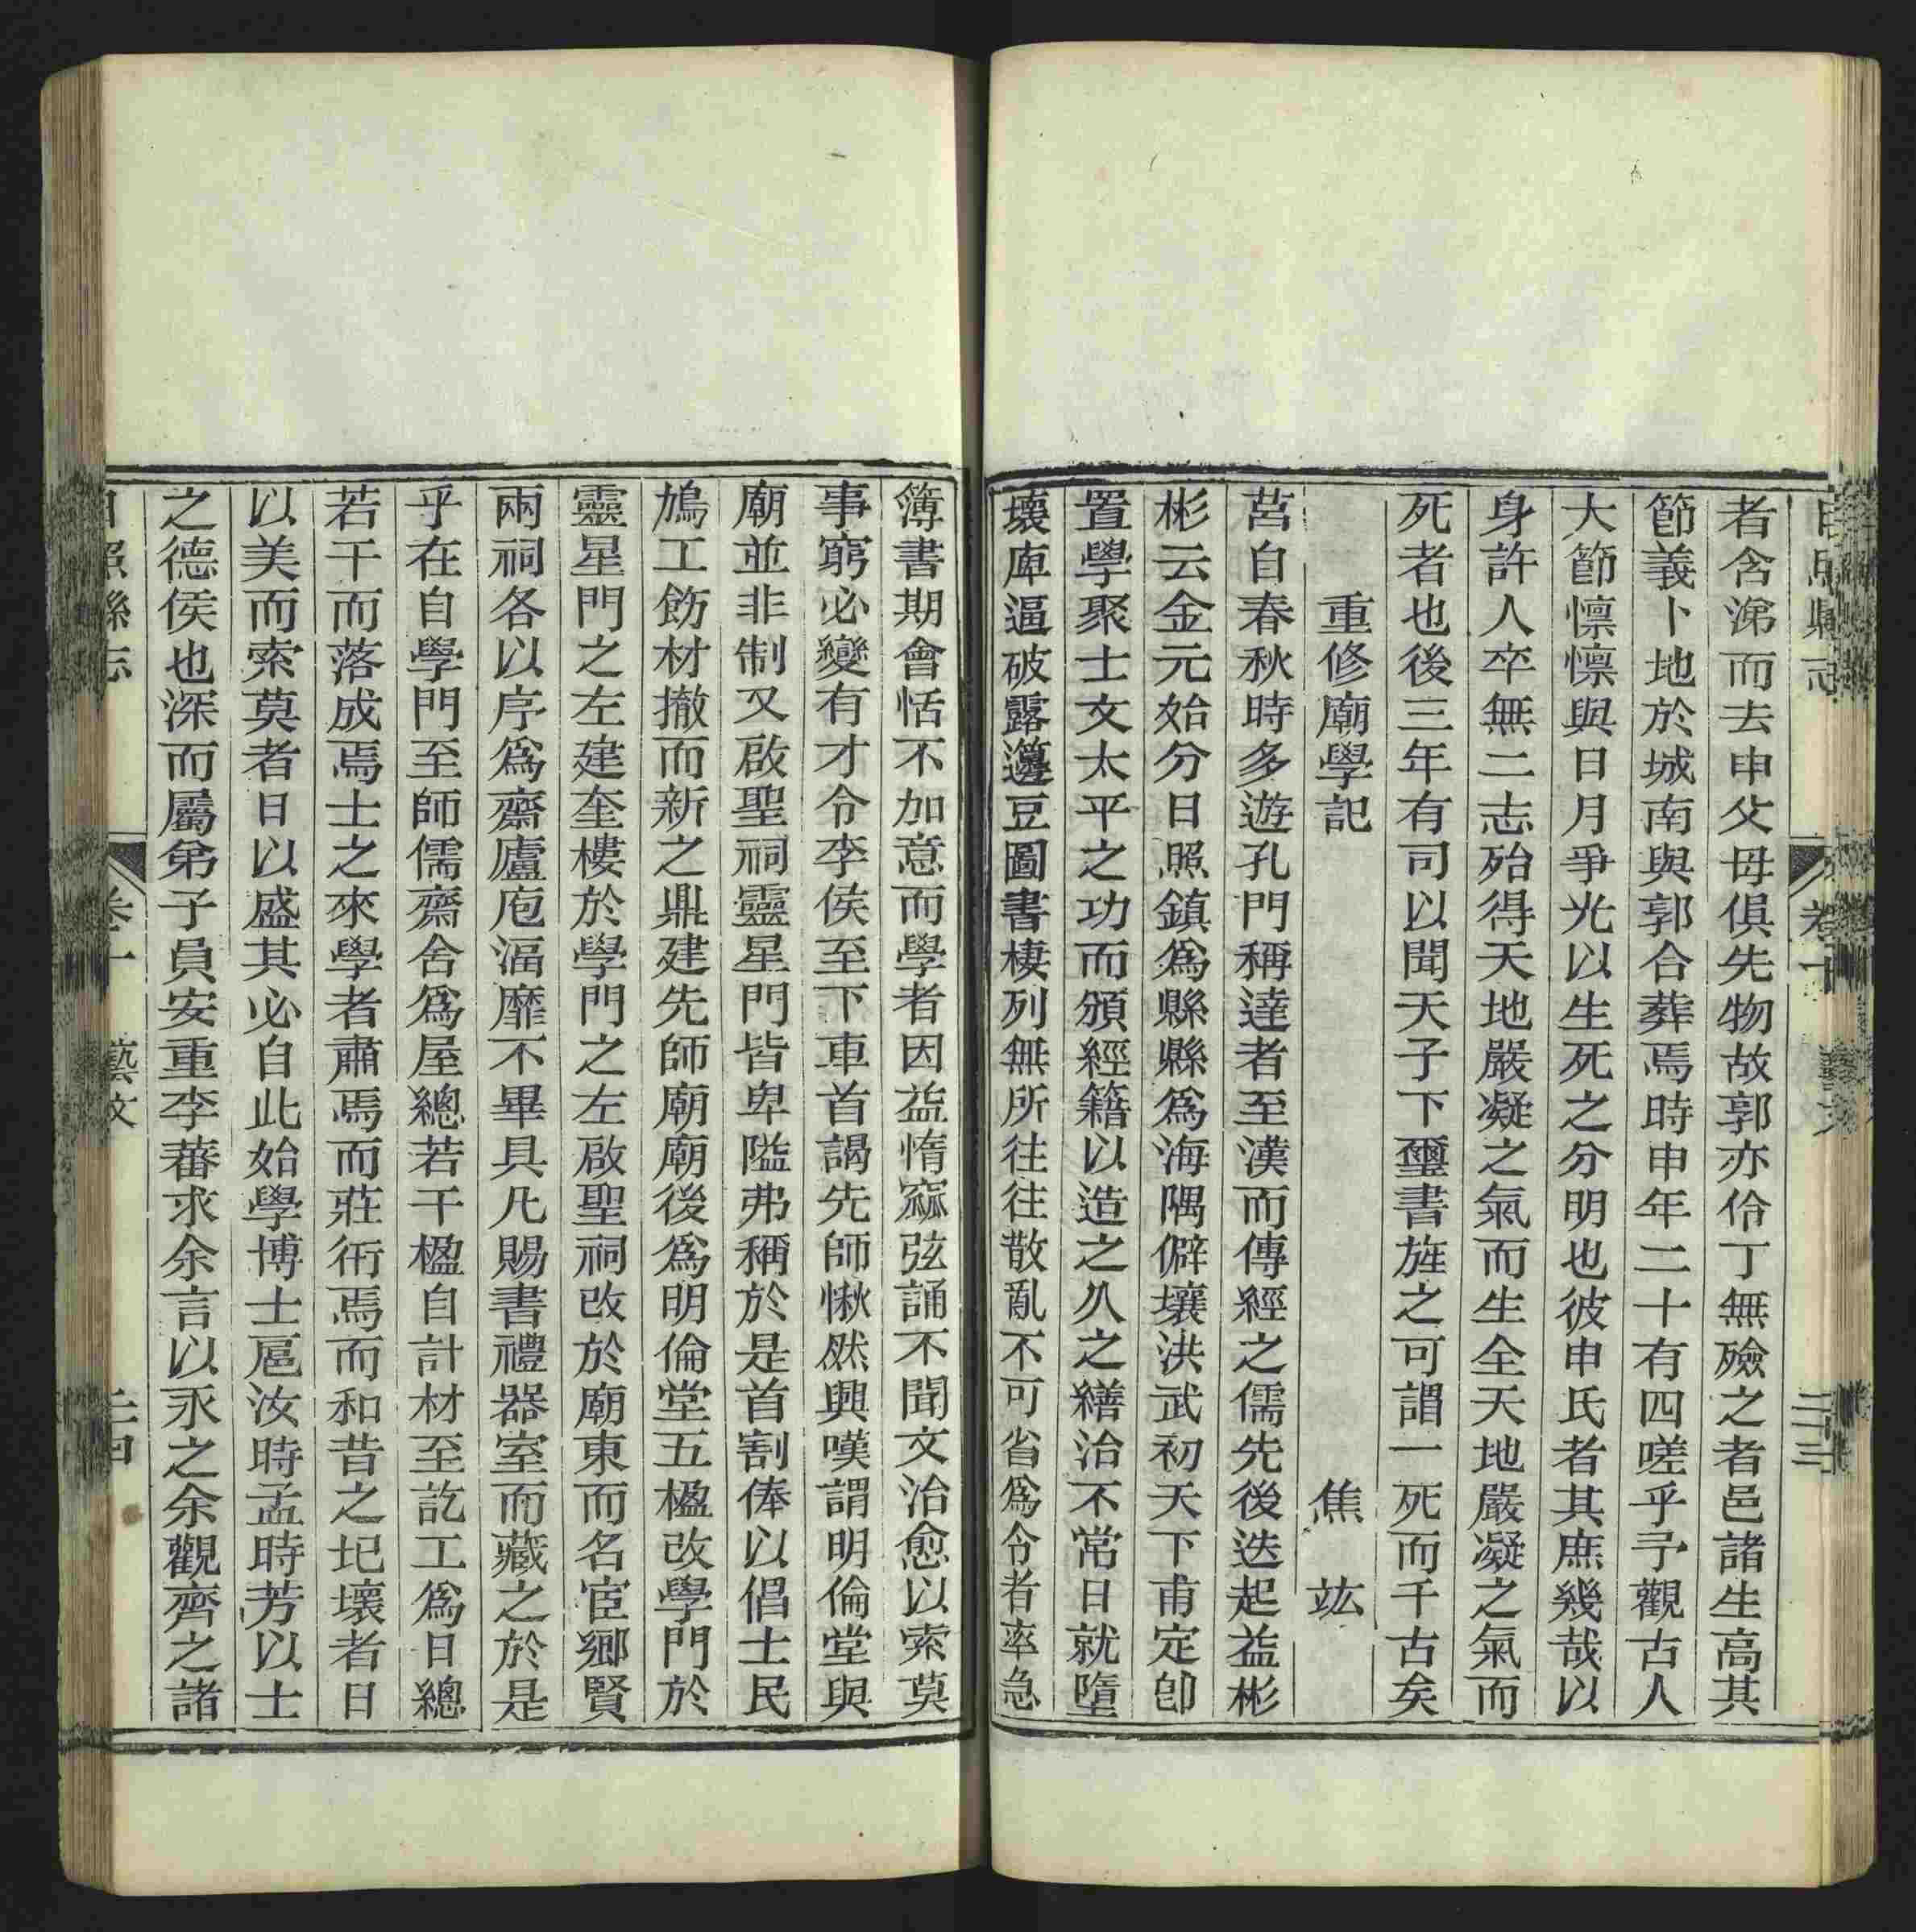 日照縣志 卷十 藝文 二十三
者含涕而去申父母俱先物故郭亦伶丁無殮之者邑諸生高其
節義卜地於城南與郭合葬焉時申年二十有四嗟乎予觀古人
大節懍懍與日月爭光以生死之分明也彼申氏者其庶幾哉以
身許人卒無二志殆得天地嚴凝之氣而生全天地嚴凝之氣而
死者也後三年有司以聞天子下璽書旌之可謂一死而千古矣
重修廟學記 焦竑
莒自春秋時多遊孔門稱達者至漢而傳經之儒先後迭起益彬
彬云金元始分日照鎮為縣縣為海隅僻壤洪武初天下甫定卽
置學聚士文太平之功而頒經籍以造之久之繕治不常日就墮
壞庳逼破露籩豆圖書棲列無所往往散亂不可省為令者率急
簿書期會恬不加意而學者因益惰窳弦誦不聞文治愈以索莫
事窮必變有才令李侯至下車首謁先師愀然興嘆謂明倫堂與
廟並非制又啟聖祠靈星門皆卑隘弗稱於是首割俸以倡士民
鳩工飭材撤而新之鼎建先師廟廟後為明倫堂五楹改學門於
靈星門之左建奎樓於學門之左啟聖祠改於廟東而名宦鄉賢
兩祠各以序為齋廬庖湢靡不畢具凡賜書禮器室而藏之於是
乎在自學門至師儒齋舍為屋總若干楹自計材至訖工為日總
若干而落成焉士之來學者肅焉而莊衎焉而和昔之圮壞者日
以美而索莫者日以盛其必自此始學博士扈汝時孟時芳以士
之德侯也深而屬弟子員安重李蕃求余言以永之余觀齊之諸
日照縣志 卷十 藝文 二十四